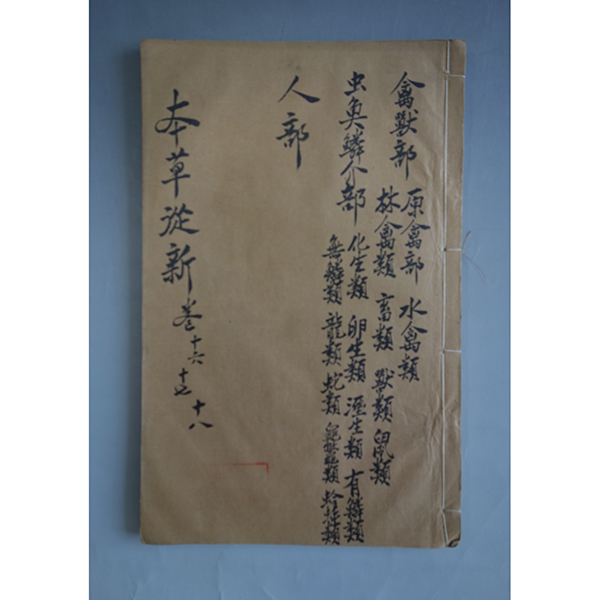 禽獸部
原禽部 水禽類
林禽類 畜類 獸類 鼠類
虫魚鱗介部
化生類 卵生類 溼生類 有鱗類
無鱗類 龍類 蛇類 龜鱉類 蛤蚌類
人部
本草從新 卷十六 十七 十八